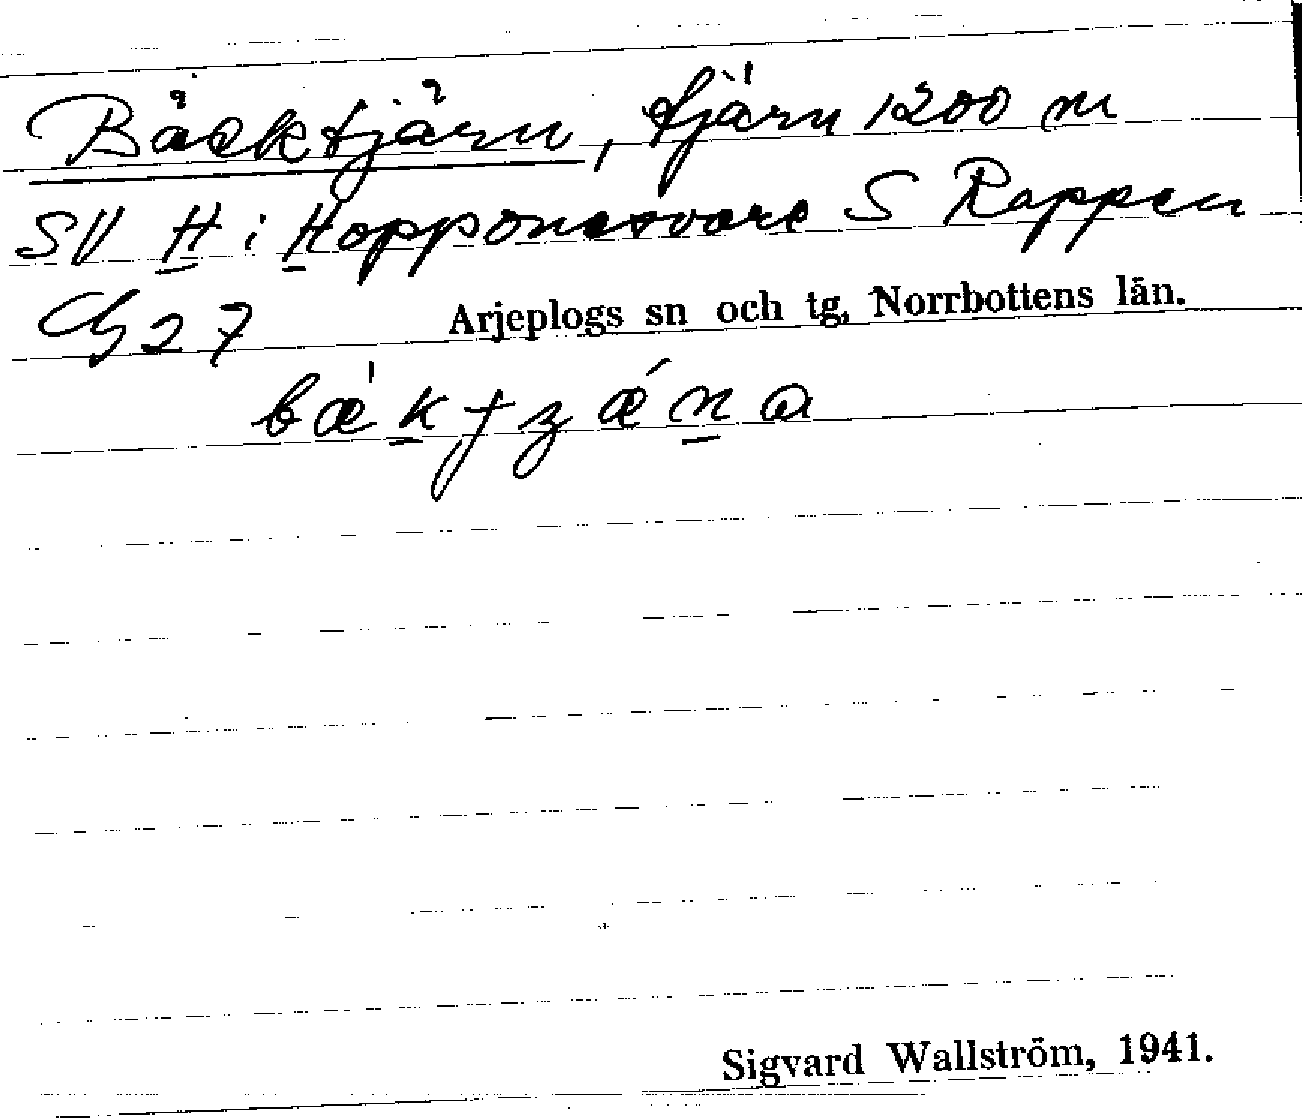 Bäcktjärn, tjärn 1200 m
SV H i Hopponesvare S Rappen
Ch 27 Arjeplogs sn och tg, Norrbottens län.
Sigvard Wallström, 1941.